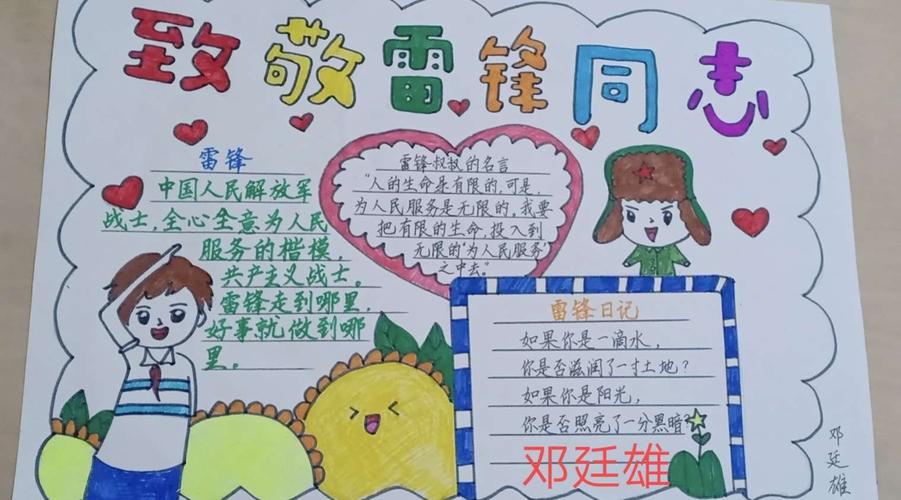 致敬雷锋同志
雷锋
中国人民解放军
战士,全心全意为人民
服务的楷模,
共产主义战士。
雷锋走到哪里,
好事就做到哪
里。
雷锋叔叔的名言
"人的生命是有限的,可是,
为人民服务是无限的,我要
把有限的生命,投入到
无限的"为人民服务"
之中去。"
雷锋日记
如果你是一滴水,
你是否滋润了一寸土地?
如果你是阳光,
你是否照亮了一分黑暗?
邓廷雄
邓廷雄